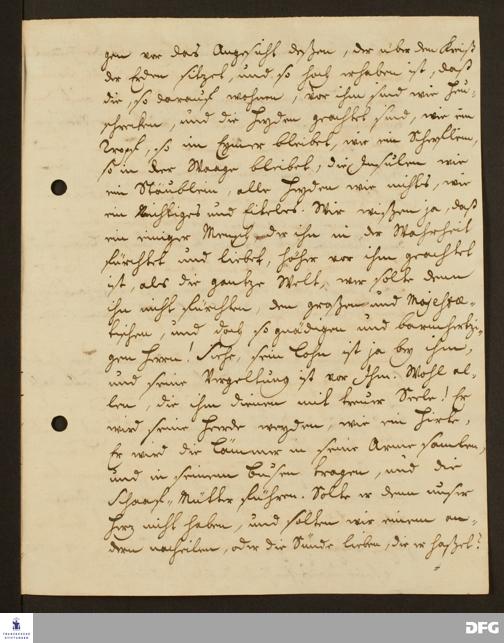 gen vor das Angesicht deßen, der über den Kreiß
der Erden sitzet, und so hoch erhaben ist, daß
die, so darauf wohnen, vor ihm sind wie Heu-
schrecken, und die Heyden geachtet sind, wie ein
Tropf, so im Eymer bleibet, wie ein Scherflein,
so in der Waage bleibet, die Insulen wie
ein Stäublein, alle Heyden wie nichts, wie
ein Nichtiges und Eiteles. Wir wißen ja, daß
ein einiger Mensch der ihn in der Wahrheit
fürchtet und liebet, höher vor ihm geachtet
ist, als die gantze Welt, wer solte denn
ihn nicht fürchten, den großen und Majestæ-
tischen, und doch so gnädigen und barmhertzi-
gen Herrn! Siehe, sein Lohn ist ja bey ihm,
und seine Vergeltung ist vor Ihm. Wohl al-
len, die ihm dienen mit treuer Seele! Er
wird seine Heerde weyden, wie ein Hirte,
Er wird die Lämmer in seine Arme samlen,
und in seinem Busen tragen, und die
Schaaf-Mütter führen. Solte er denn unser
Hertz nicht haben, und solten wir einem an-
dern nacheilen, oder die Sünde lieben, die er haßet?
FRANCKESCHE
STIFTUNGEN
DFG